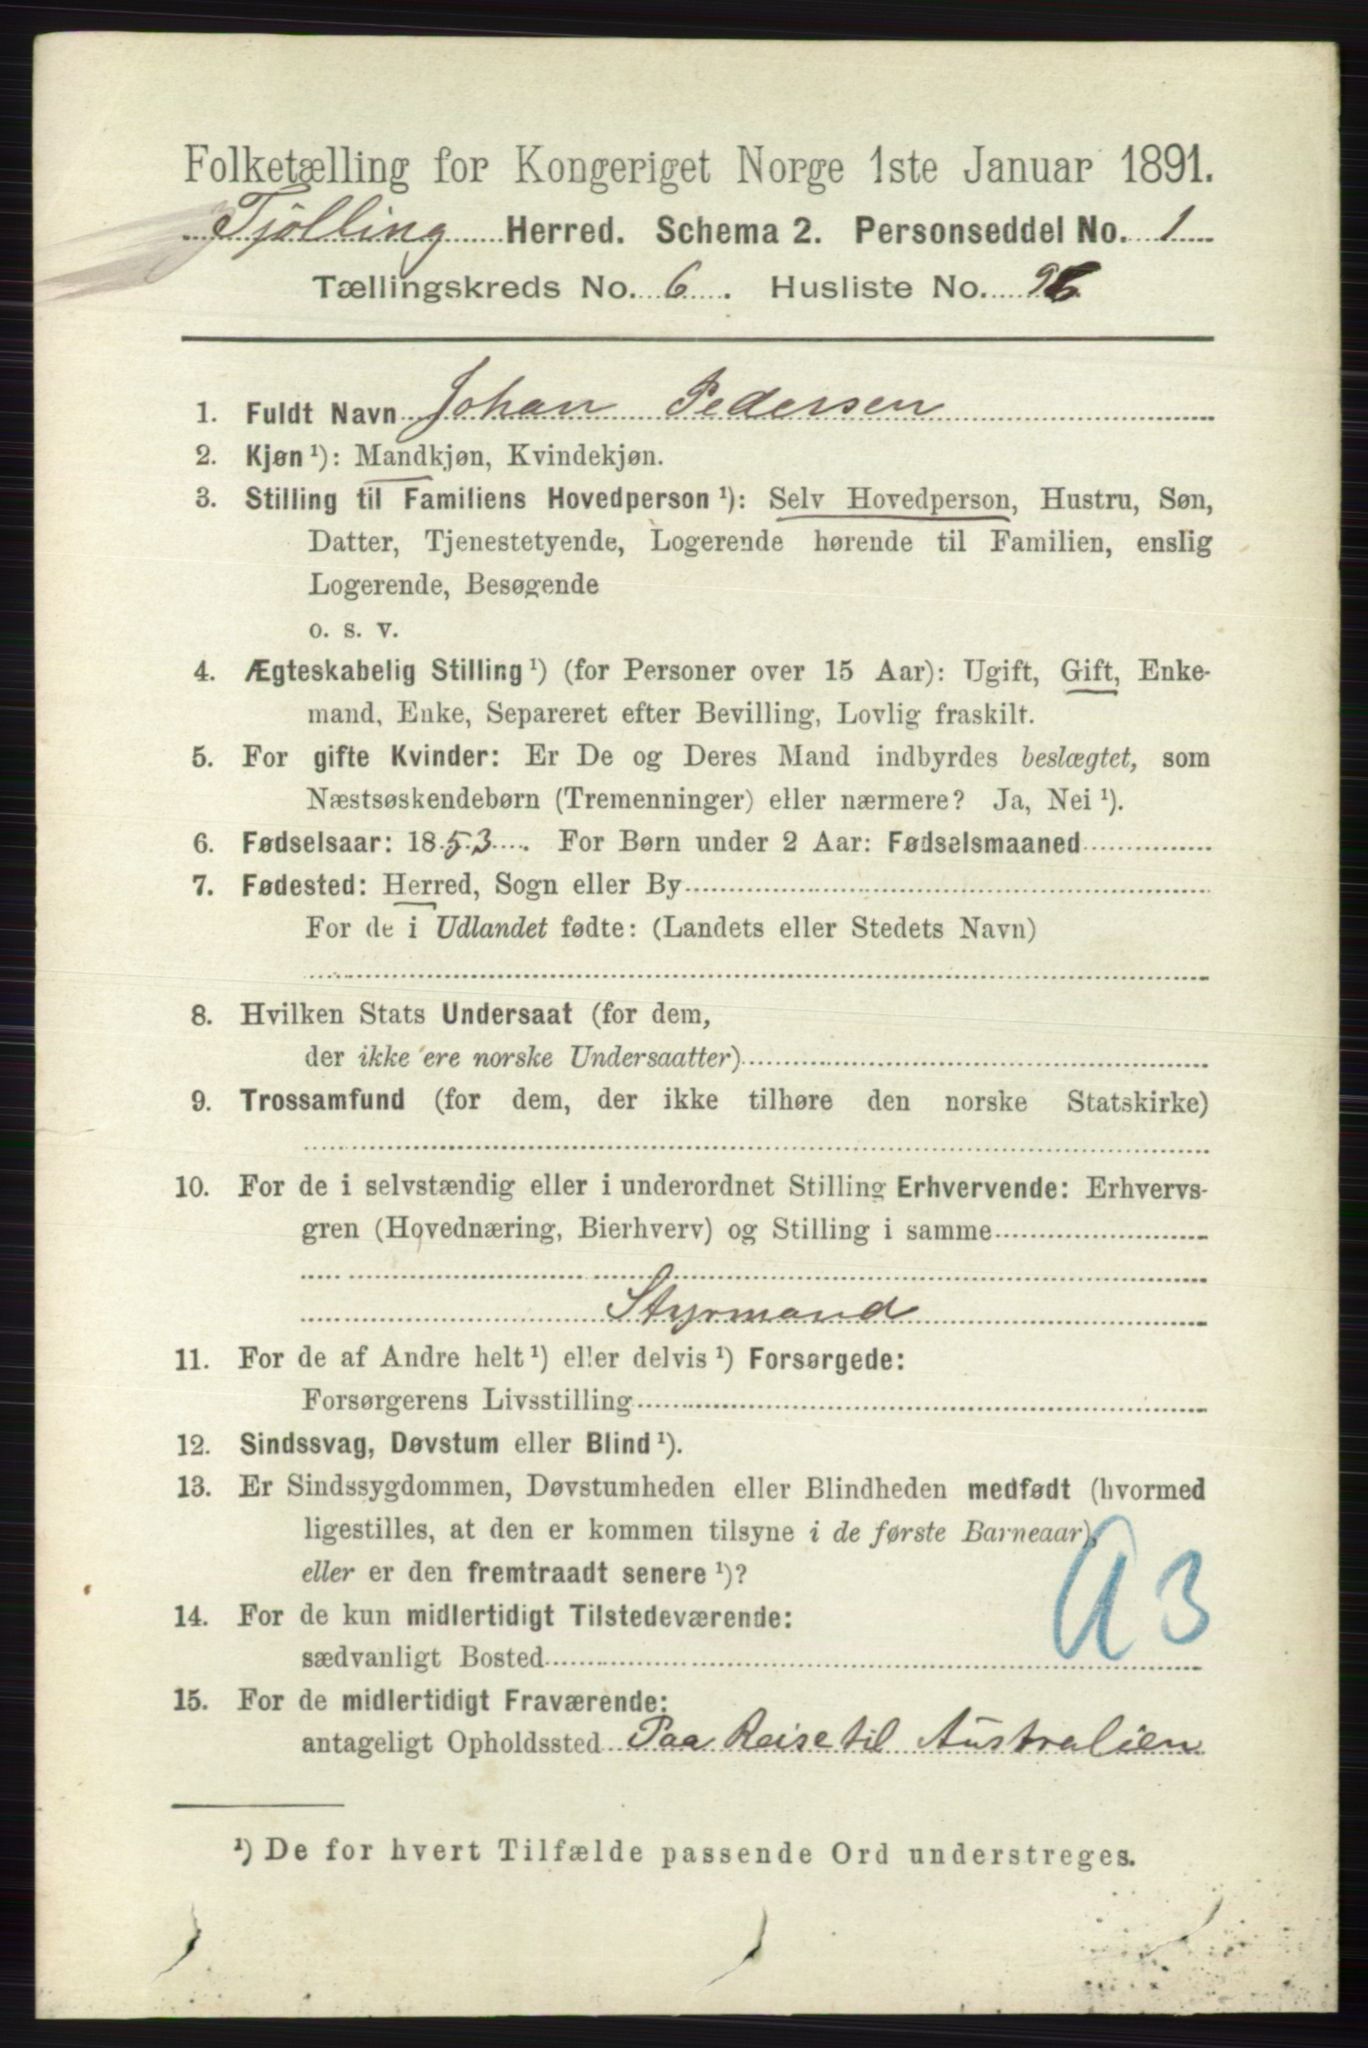 Folketælling for Kongeriget Norge 1ste Januar 1891.
Tjølling Herred. Schema 2. Personseddel No. 1
Tællingskreds No. 6. Husliste No. 96
1. Fuldt Navn Johan Pedersen
2. Kjøn ¹): Mandkjøn, Kvindekjøn.
3. Stilling til Familiens Hovedperson ¹): Selv Hovedperson, Hustru, Søn,
Datter, Tjenestetyende, Logerende hørende til Familien, enslig
Logerende, Besøgende
o. s. v.
4. Ægteskabelig Stilling ¹) (for Personer over 15 Aar): Ugift, Gift, Enke-
mand, Enke, Separeret efter Bevilling, Lovlig fraskilt.
5. For gifte Kvinder: Er De og Deres Mand indbyrdes beslægtet, som
Næstsøskendebørn (Tremenninger) eller nærmere? Ja, Nei ¹).
6. Fødselsaar: 1853. For Børn under 2 Aar: Fødselsmaaned
7. Fødested: Herred, Sogn eller By
For de i Udlandet fødte: (Landets eller Stedets Navn)
8. Hvilken Stats Undersaat (for dem,
der ikke ere norske Undersaatter)
9. Trossamfund (for dem, der ikke tilhøre den norske Statskirke)
10. For de i selvstændig eller i underordnet Stilling Erhvervende: Erhvervs-
gren (Hovednæring, Bierhverv) og Stilling i samme
Styrmand
11. For de af Andre helt ¹) eller delvis ¹) Forsørgede:
Forsørgerens Livsstilling
12. Sindssvag, Døvstum eller Blind ¹).
13. Er Sindssygdommen, Døvstumheden eller Blindheden medfødt (hvormed
ligestilles, at den er kommen tilsyne i de første Barneaar),
eller er den fremtraadt senere ¹)?
A 3
14. For de kun midlertidigt Tilstedeværende:
sædvanligt Bosted
15. For de midlertidigt Fraværende:
antageligt Opholdssted Paa Reise til Australien
¹) De for hvert Tilfælde passende Ord understreges.